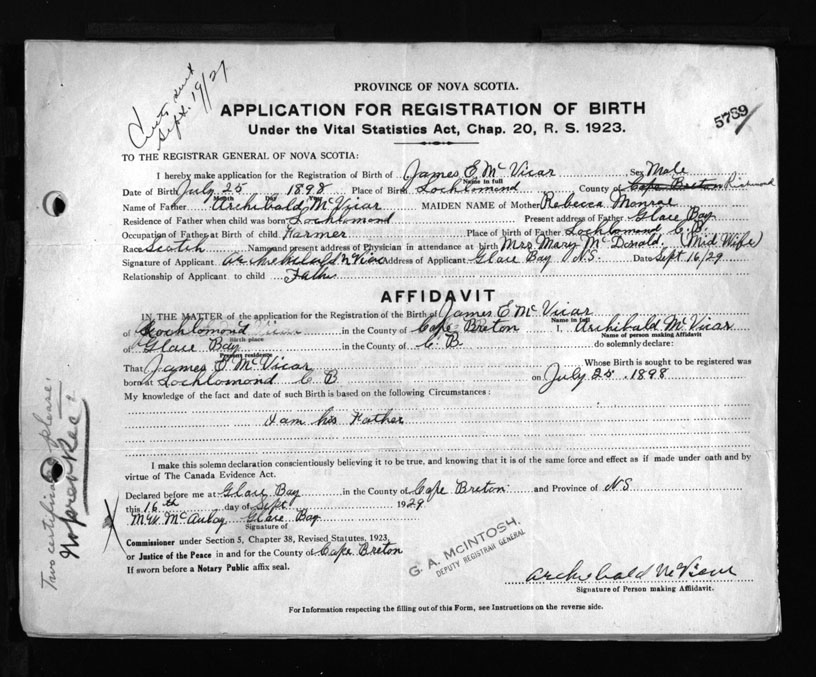 Sept. 19/29
5789
PROVINCE OF NOVA SCOTIA.
APPLICATION FOR REGISTRATION OF BIRTH
Under the Vital Statistics Act, Chap. 20, R. S. 1923.
TO THE REGISTRAR GENERAL OF NOVA SCOTIA:
I hereby make application for the Registration of Birth of James E McVicar Sex Male
Name in full
Date of Birth July 25 1898 Place of Birth Lochlomond County of Cape Breton Richmond
Month Day Year
Name of Father Archibald McVicar MAIDEN NAME of Mother Rebecca Monroe
Residence of Father when child was born Lochlomond Present address of Father Glace Bay
Occupation of Father at Birth of child Farmer Place of birth of Father Lochlomond C.B.
Race Scotch Name and present address of Physician in attendance at birth Mrs Mary McDonald (Mid Wife)
Signature of Applicant Archibald McVicar Address of Applicant Glace Bay N.S. Date Sept 16/29
Relationship of Applicant to child Father
AFFIDAVIT
IN THE MATTER of the application for the Registration of the Birth of James E McVicar
Name in full
of Lochlomond in the County of Cape Breton I, Archibald McVicar
Birth place Name of person making Affidavit
of Glace Bay in the County of C.B. do solemnly declare:
Present residence
That James E McVicar Whose Birth is sought to be registered was
born at Lochlomond C B on July 25 1898
My knowledge of the fact and date of such Birth is based on the following Circumstances:
I am his Father
I make this solemn declaration conscientiously believing it to be true, and knowing that it is of the same force and effect as if made under oath and by
virtue of The Canada Evidence Act.
Declared before me at Glace Bay in the County of Cape Breton and Province of N.S
this 16th day of Sept 1929
McAulay Glace Bay
Signature of
Commissioner under Section 5, Chapter 38, Revised Statutes, 1923,
or Justice of the Peace in and for the County of Cape Breton
If sworn before a Notary Public affix seal.
G. A. McINTOSH,
DEPUTY REGISTRAR GENERAL
Archibald McVicar
Signature of Person making Affidavit.
For Information respecting the filling out of this Form, see Instructions on the reverse side.
Two certificates please.
No prev Rec?